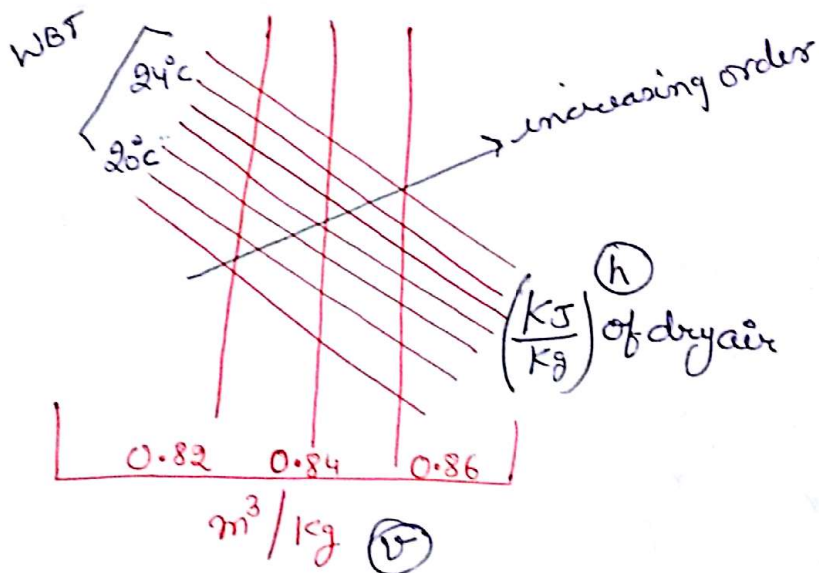 WBT
24°C
increasing order
20°C
h
(KJ/Kg) of dry air
0.82 0.84 0.86
m³/Kg v